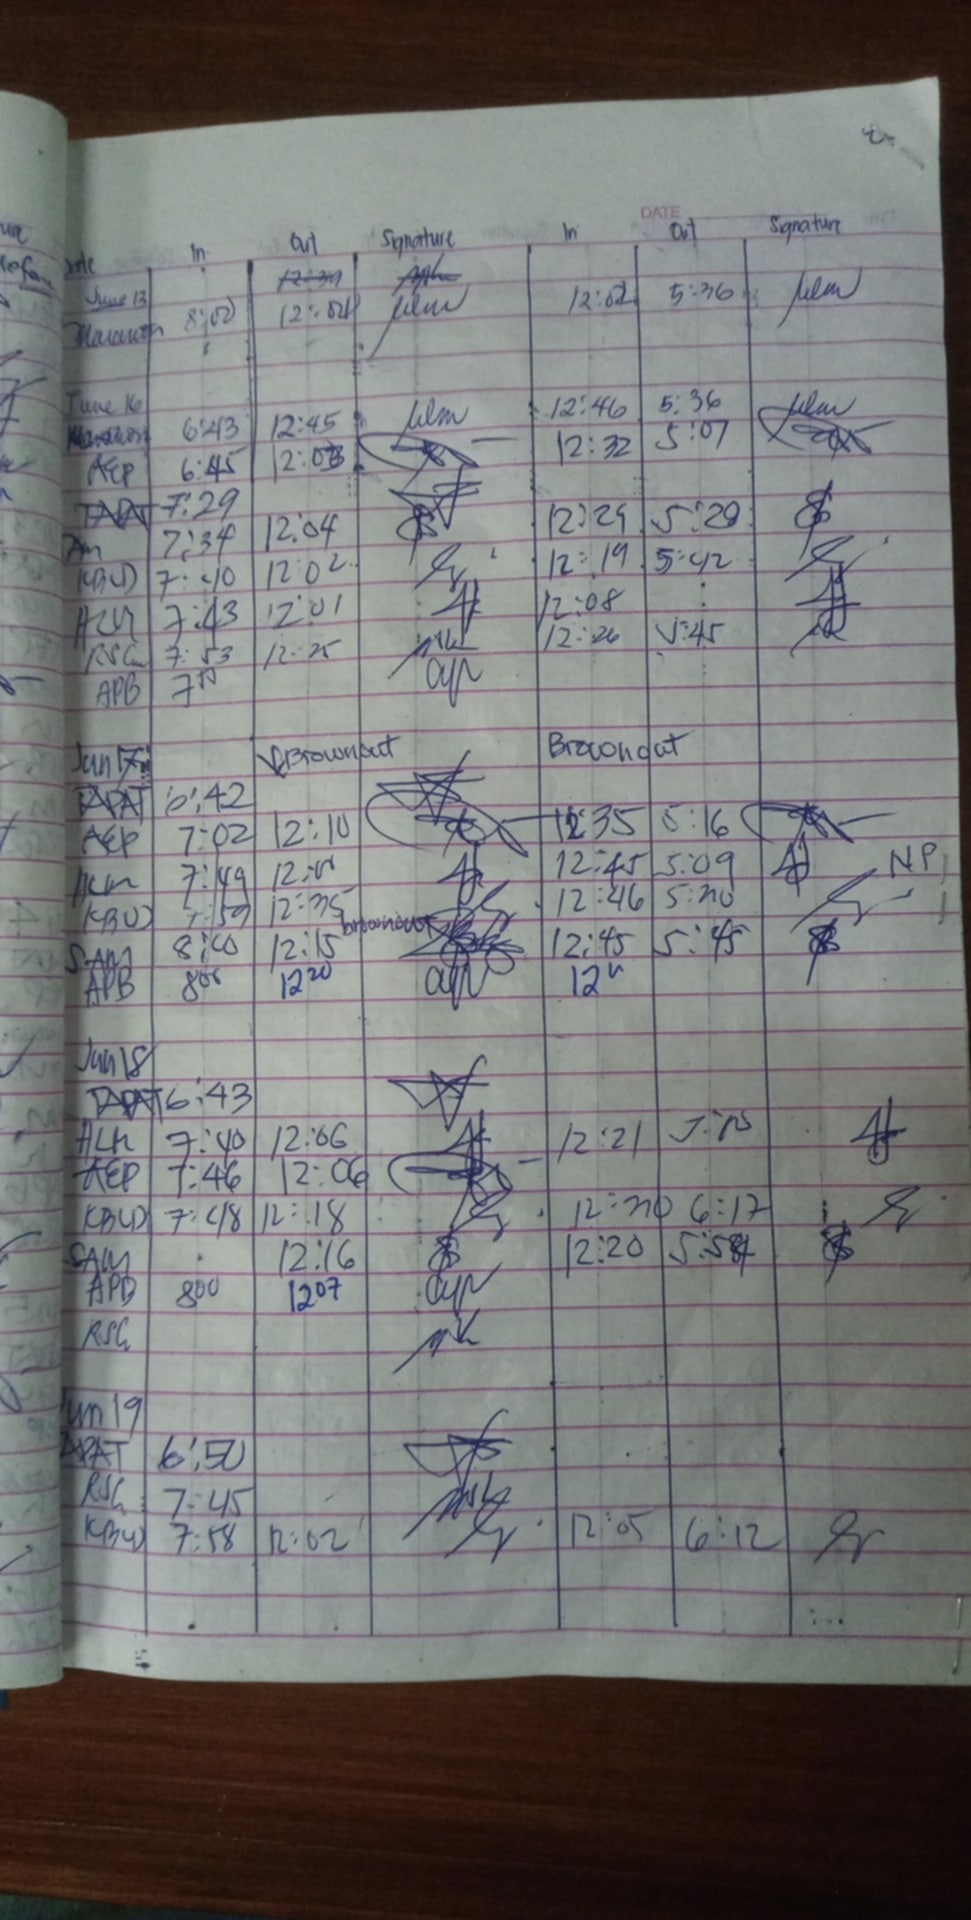 DATE
Date In Out Signature In Out Signature
12:30
June 13 8:00 12:01 12:02 5:36
June 16 12:46 5:36
6:43 12:45
AEP 6:45 12:03 12:32 5:07
TAPAT 7:29
7:34 12:04 12:29 5:29
KBWD 7:40 12:02 12:19 5:42
ACM 7:43 12:01 12:08
RSG 7:53 12:25 12:26 5:45
APB 750
Jun 17 Brownout Brownout
TAPAT 6:42
AEP 7:02 12:10 12:35 5:16
ACM 7:49 12:45 5:09 NP
KBWD 7:59 12:35 12:46 5:30
brownout
SAM 8:00 12:15 12:45 5:45
APB 800 1220
Jun 18
TAPAT 6:43
ACM 7:40 12:06 12:21
AEP 7:46 12:06
KBWD 7:48 12:18 12:30 6:17
SAM 12:16 12:20
APB 800 1207
RSG
Jun 19
TAPAT 6:50
RSG 7:45
KBWD 7:58 12:02 12:05 6:12